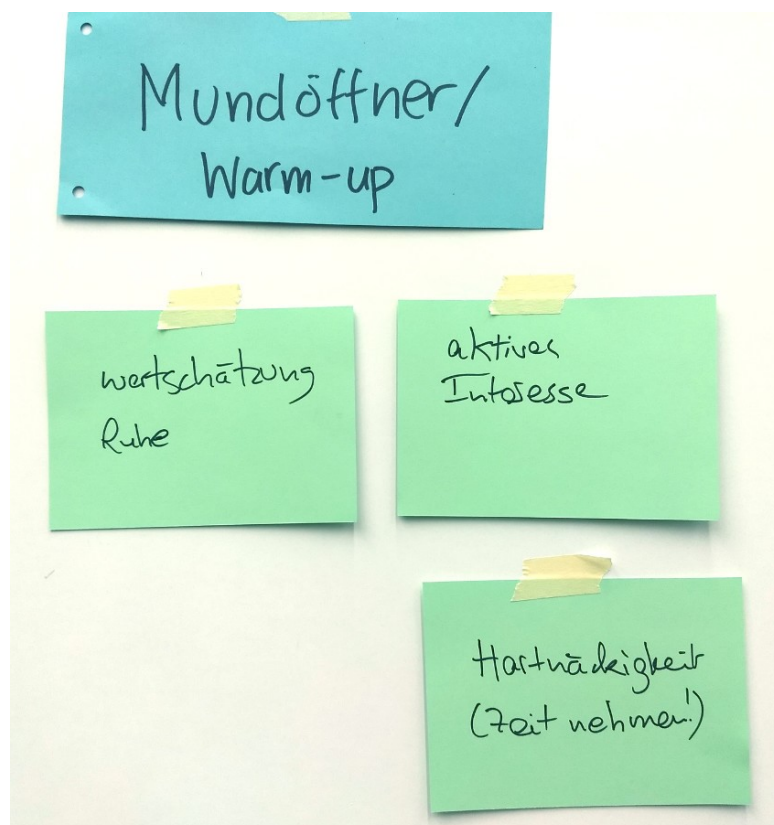 Mundöffner/
Warm-up
wertschätzung
Ruhe
aktives
Interesse
Hartnäckigkeit
(Zeit nehmen!)